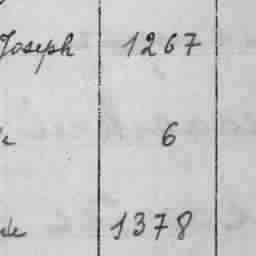 Joseph 1267
6
1378